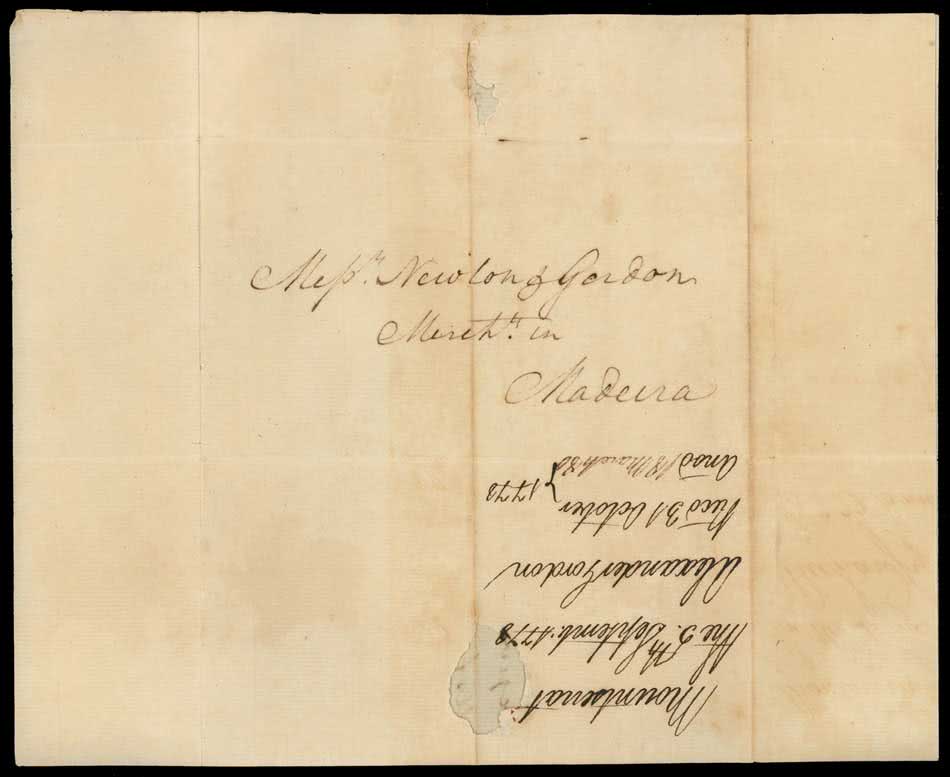 Messrs. Newton & Gordon
Merchts. in
Madeira
Mountserrat
the 5th. Septemb: 1778
Alexander Gordon
Recd 31 October } 1778
Ansd 18 March 80